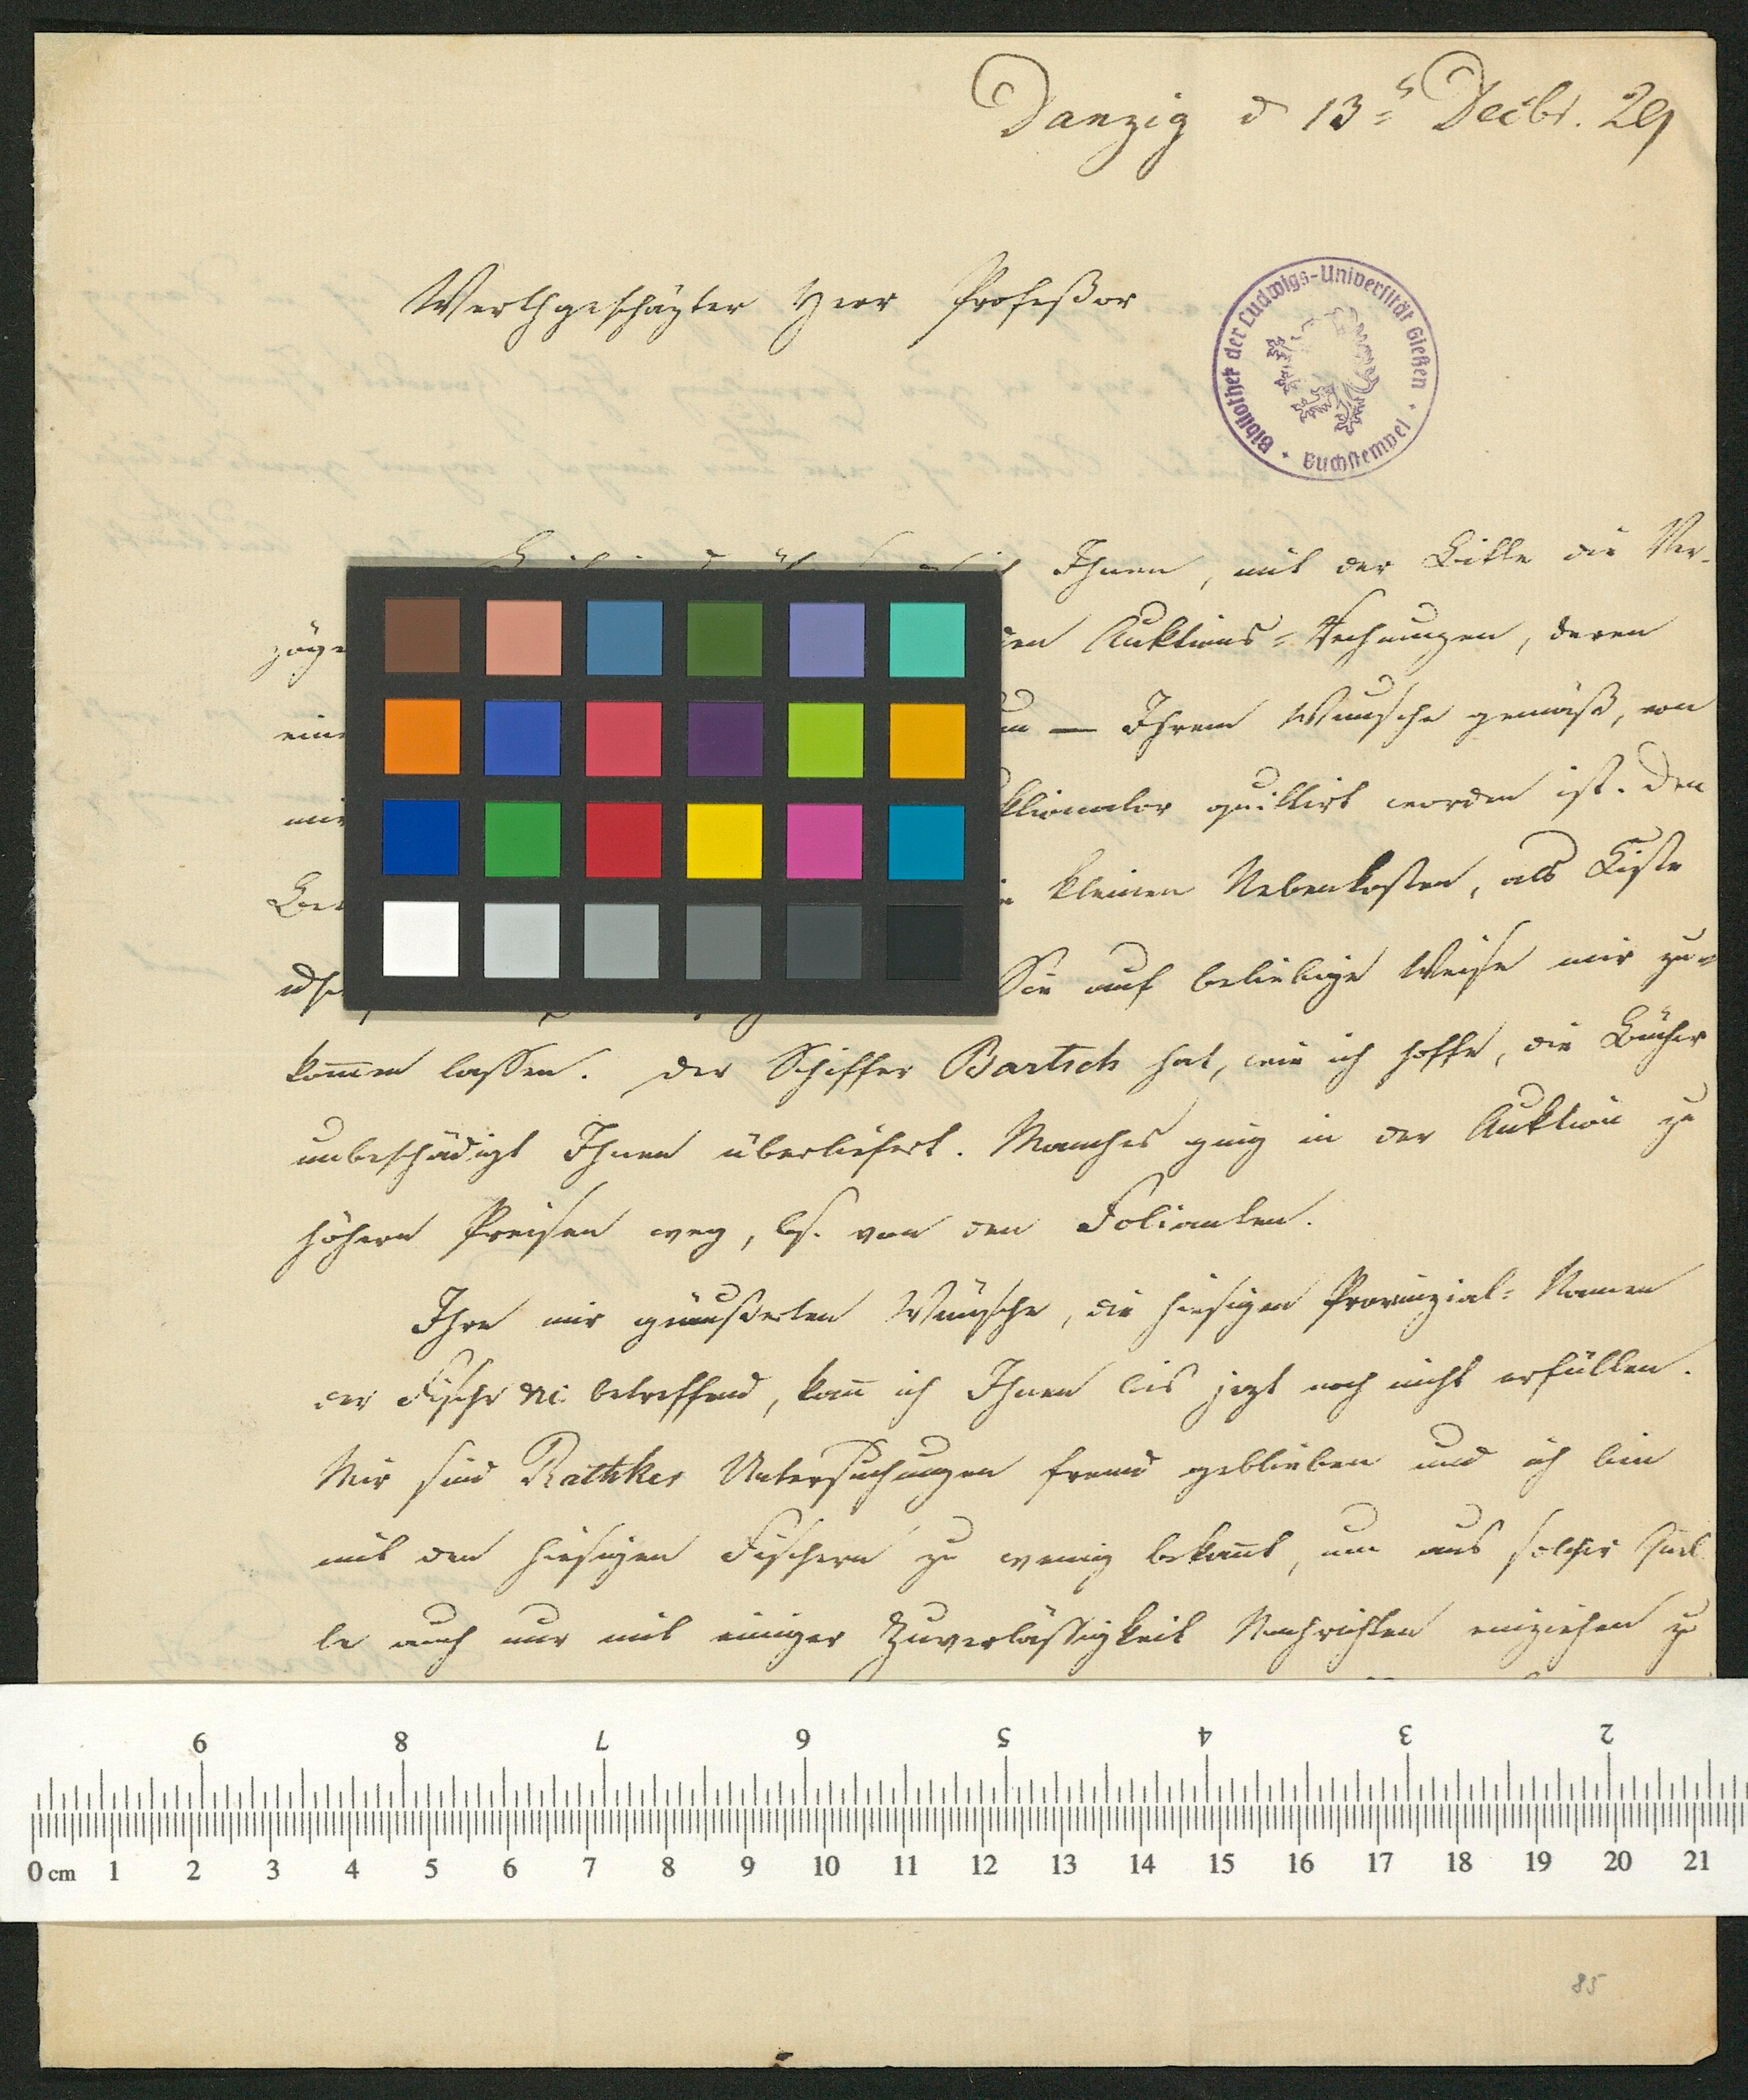 Danzig d 13ᵗ Decbr. 29
Werthgeschäzter Herr Profeßor
Bibliothek der Ludwigs-Universität Gießen
Buchstempel
Ihnen, mit der Bitte die Ver-
den Auktions-Rechnungen, deren
— Ihrem Wunsche gemäß, von
quittirt worden ist. Den
kleinen Nebenkosten, als Kiste
Sie auf beliebige Weise mir zu-
kom̄en lassen. Der Schiffer Bartsch hat, wie ich hoffe, die Bücher
unbeschädigt Ihnen überliefert. Manches ging in der Auktion zu
höhern Preisen weg, bs. von den Folianten.
Ihre mir geäußerten Wünsche, die hiesigen Provinzial-Namen
der Fische betreffend, kan̄ ich Ihnen bis jezt noch nicht erfüllen.
Mir sind Rathkes Untersuchungen fremd geblieben und ich bin
mit den hiesigen Fischern zu wenig bekan̄t, um aus solcher Quel
le auch nur mit einiger Zuverlässigkeit Nachrichten einziehen zu
9 8 7 6 5 4 3 2
0 cm 1 2 3 4 5 6 7 8 9 10 11 12 13 14 15 16 17 18 19 20 21
85